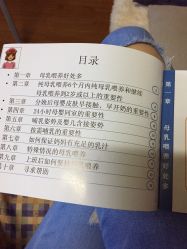 目录
第一章 母乳喂养好处多
第二章 纯母乳喂养6个月内纯母乳喂养和继续
母乳喂养到2岁或以上的重要性
第三章 分娩后母婴皮肤早接触、早开奶的重要性
第四章 24小时母婴同室的重要性
第五章 哺乳姿势及婴儿含接姿势
第六章 按需哺乳的重要性
第七章 如何保证妈妈有充足的乳汁
第八章 特殊情况的母乳喂养
第九章 上班后如何坚持母乳喂养
第十章 寻求帮助
第一章 母乳喂养好处多